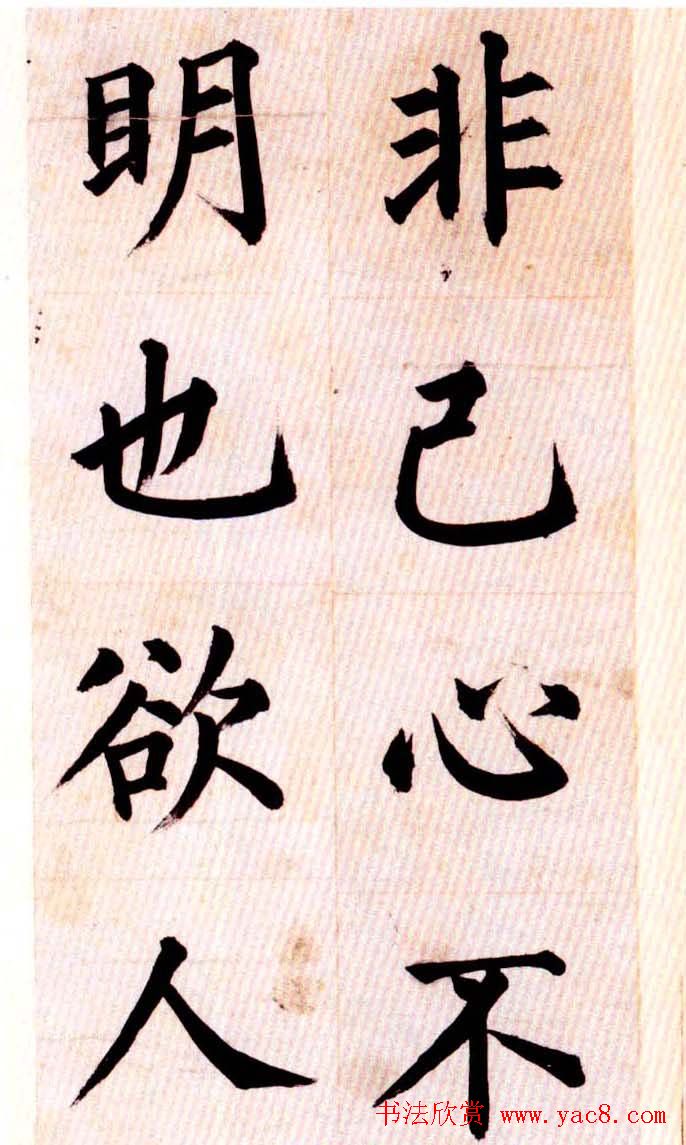 非己心不
明也欲人
书法欣赏 www.yac8.com